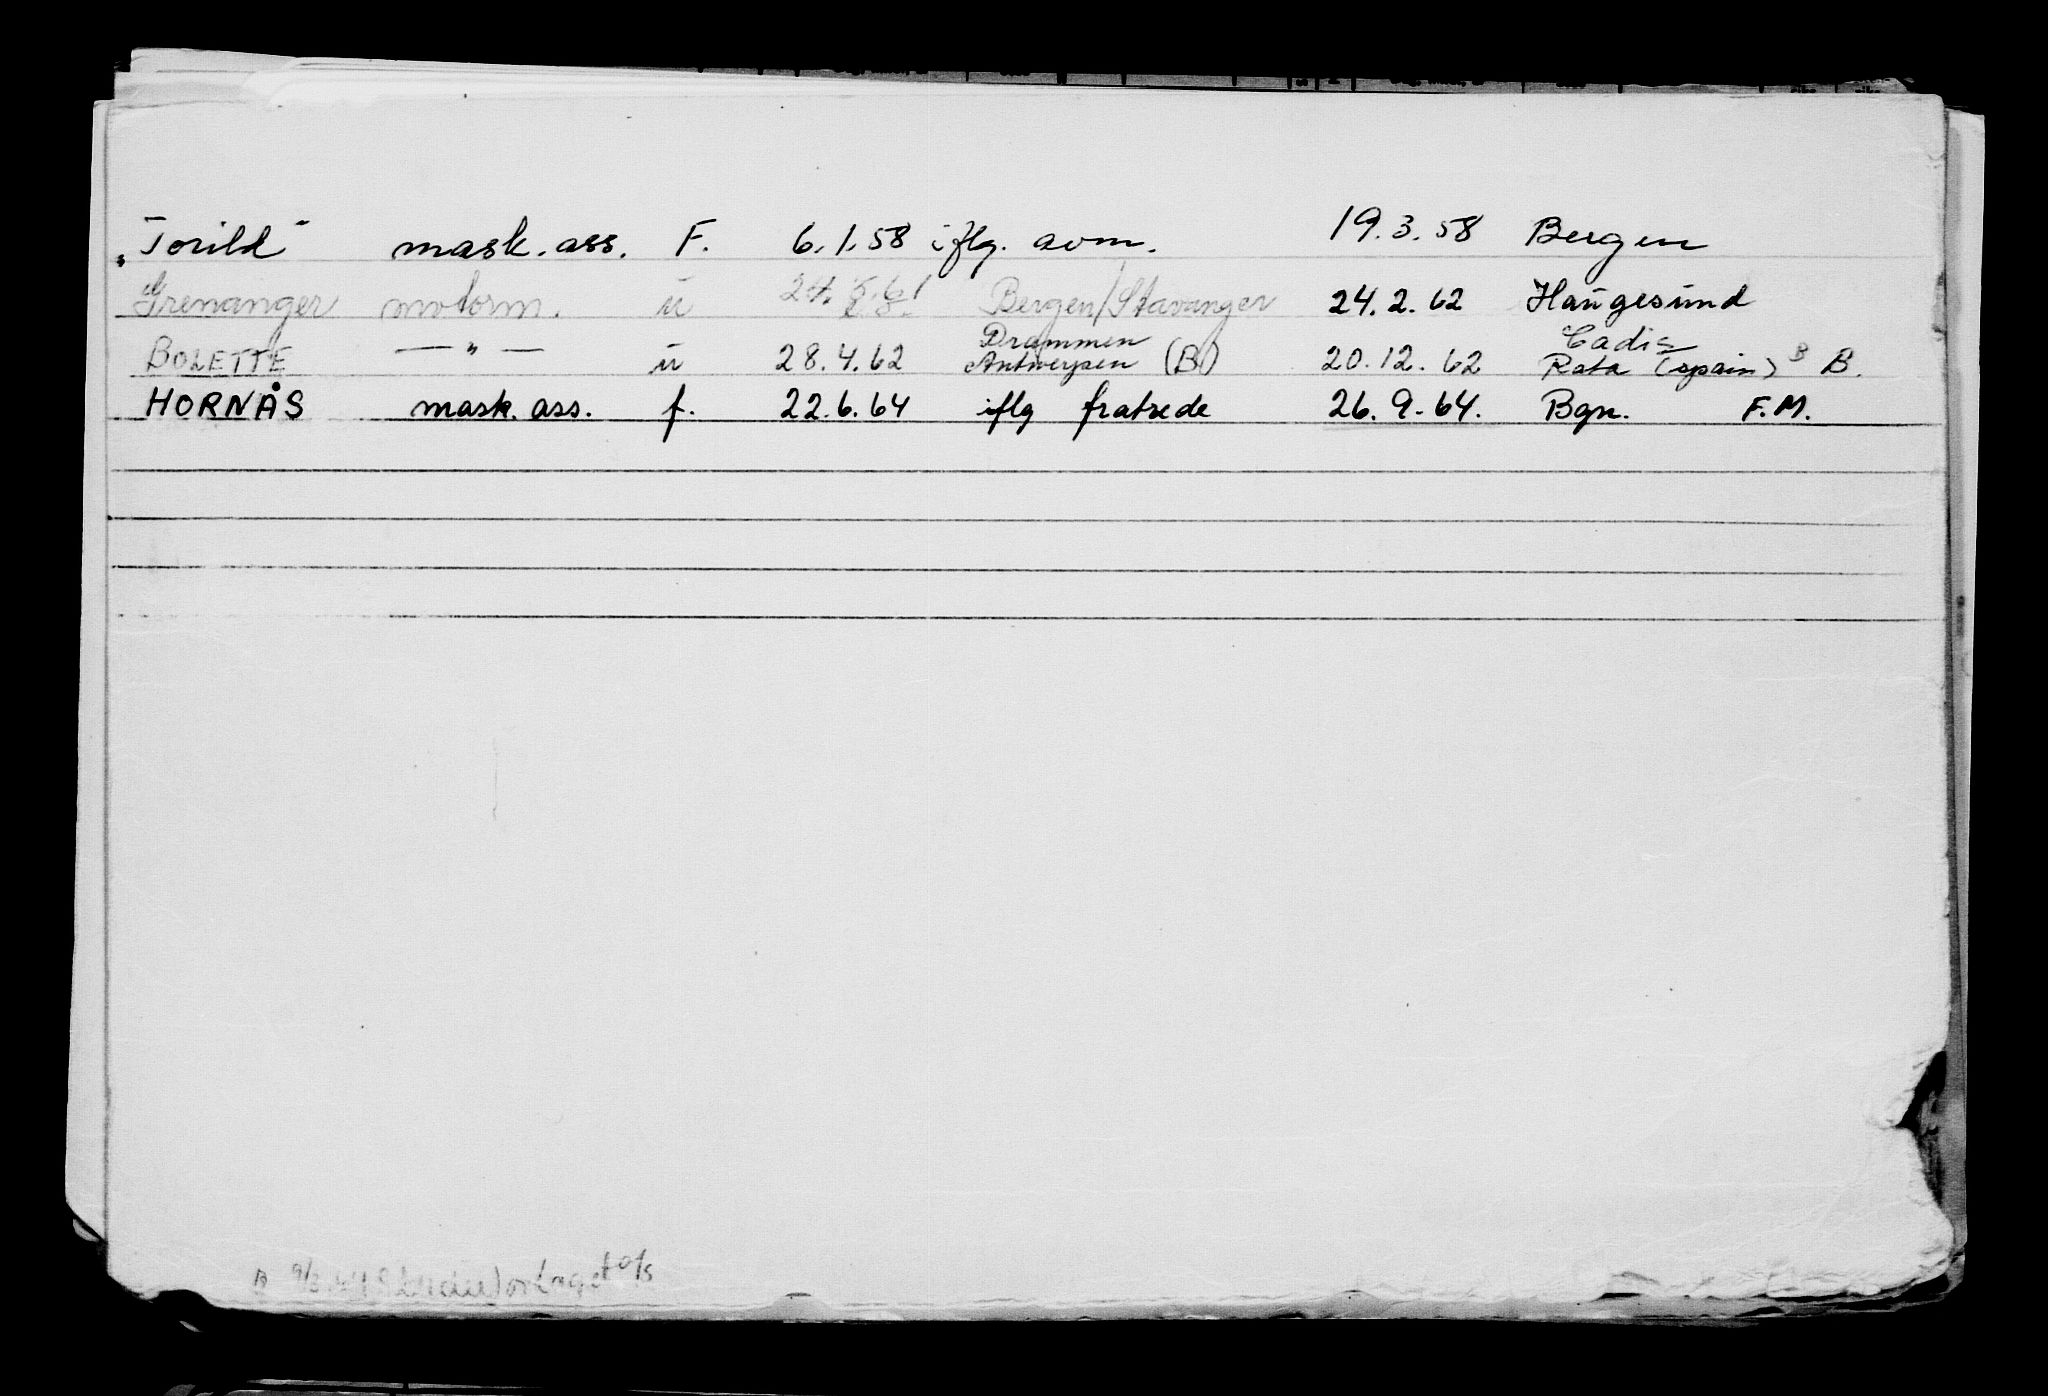 „Torild" mask. ass. F. 6.1.58 iflg. avm. 19.3.58 Bergen
Grenanger motorm. u Bergen/Stavanger 24.2.62 Haugesund
Drammen Cadis
BOLETTE — " — u 28.4.62 Antwerpen (B) 20.12.62 Rota (spain) B B.
HORNÅS mask. ass. f. 22.6.64 iflg fratrede 26.9.64. Bgn. F.M.